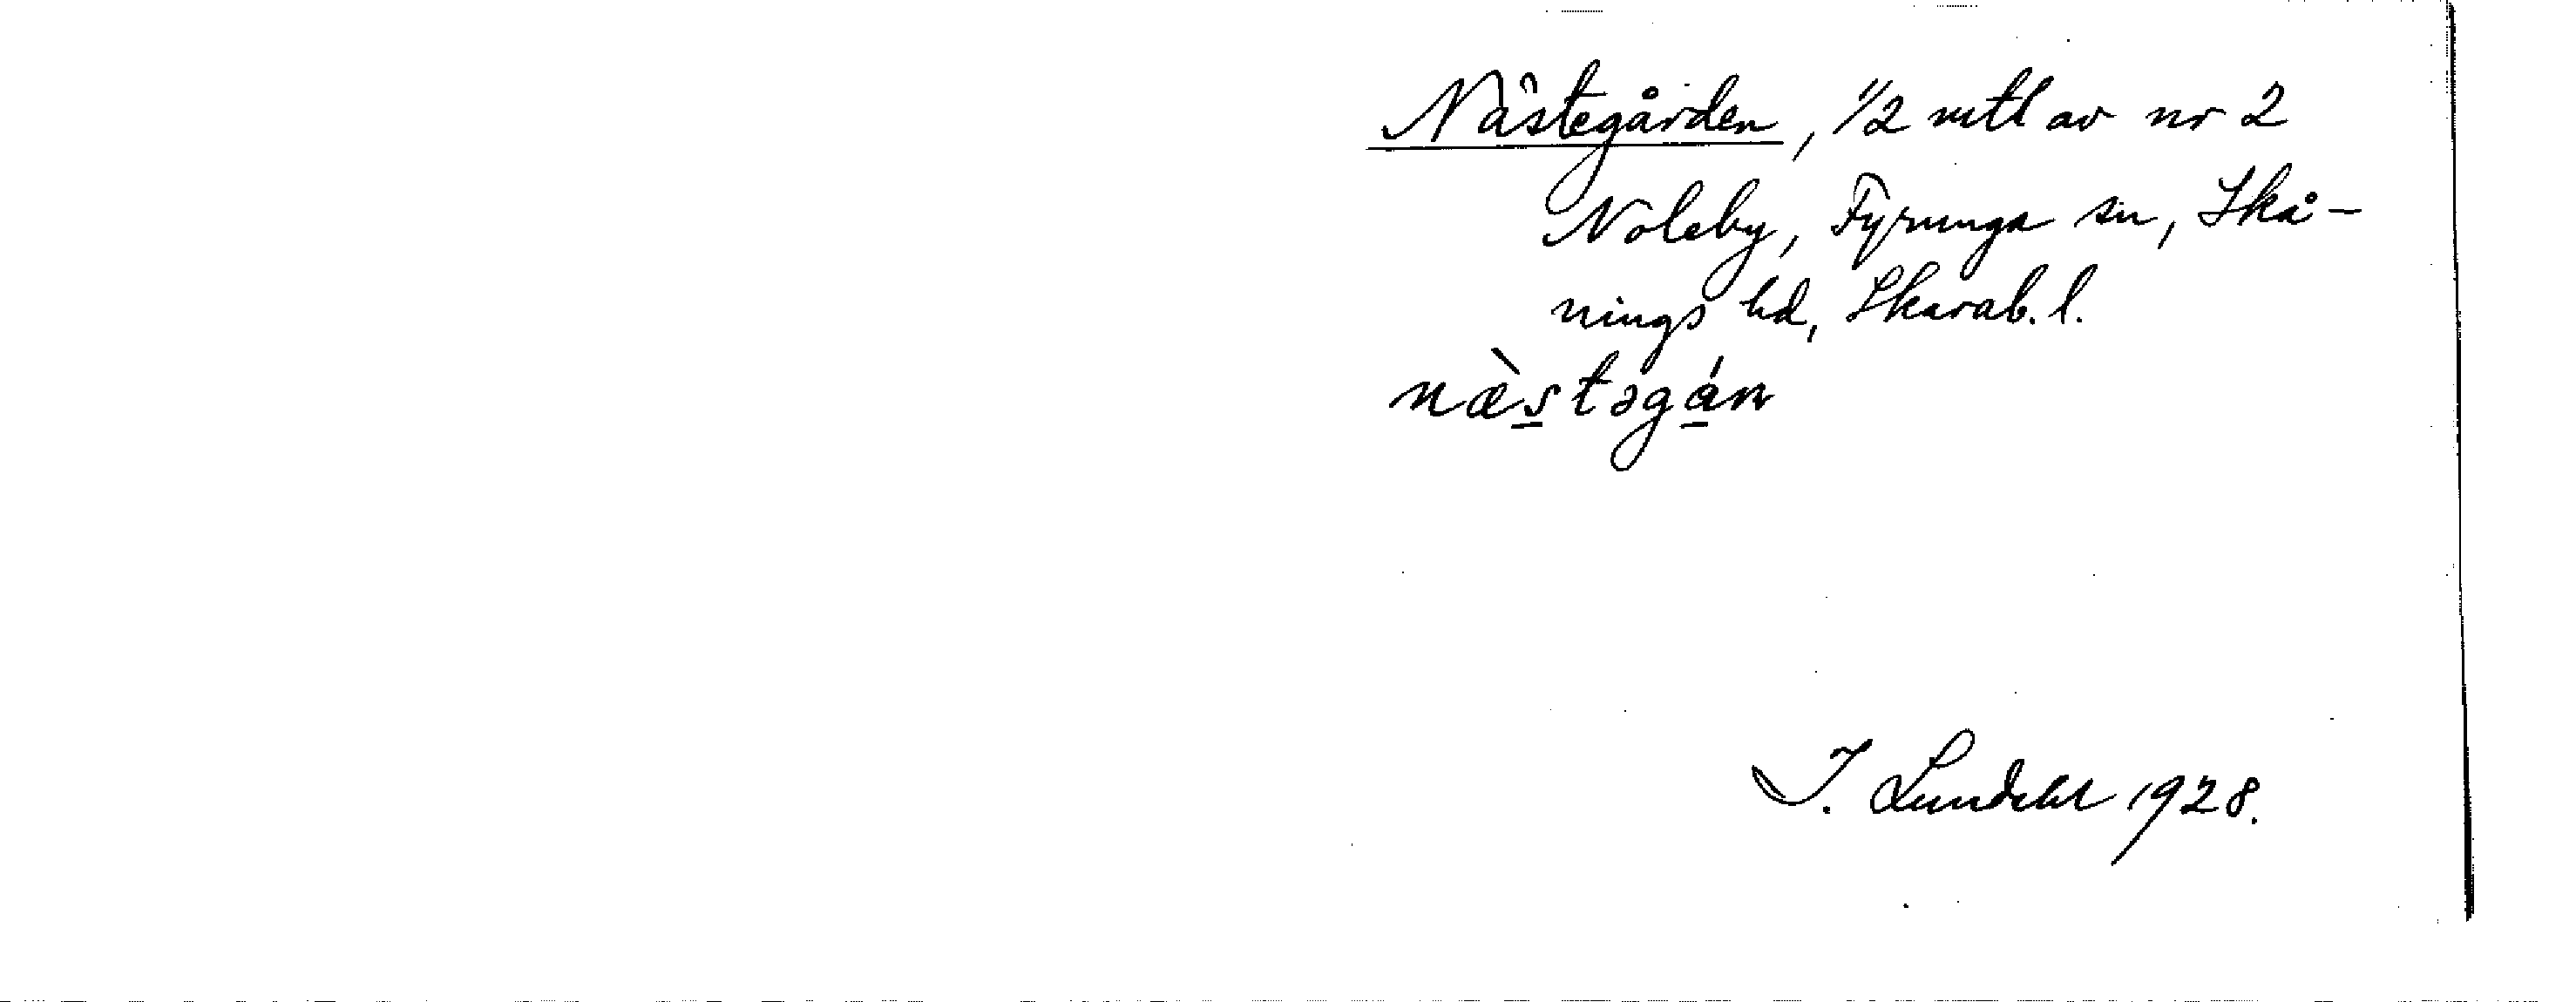 Nästegården, 1/2 mtl av nr 2
Noleby, Fyrunga sn, Skå-
nings hd, Skarab. l.
næ̀stəgán
I. Lundahl 1928.